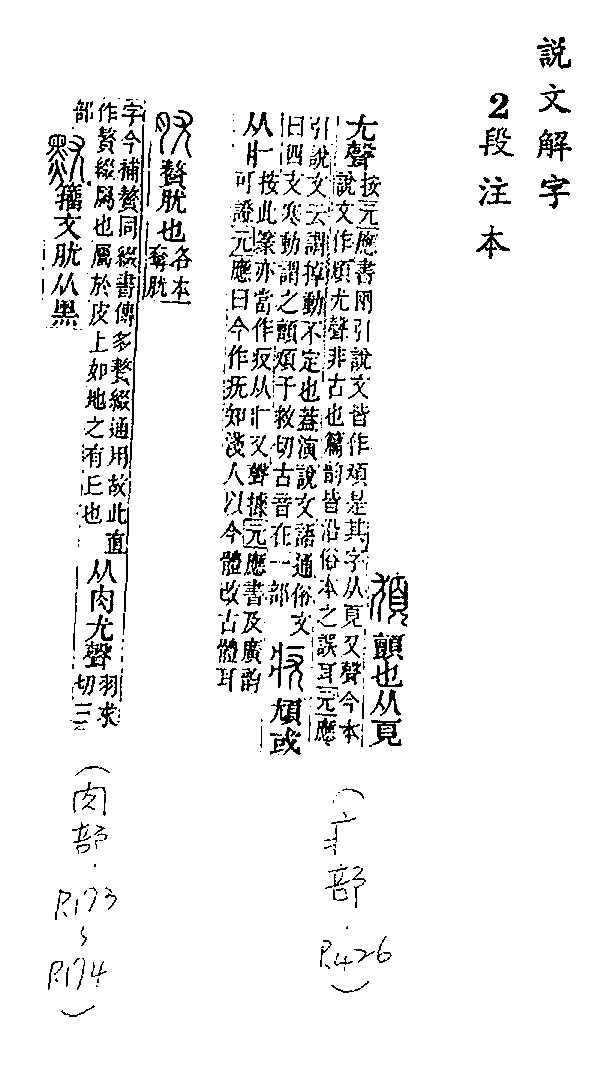 説文解字
2段注本
𩑣顫也从頁
尤聲
按元應書兩引說文皆作𩑣是其字从頁又聲今本
說文作𩑣尤聲非古也篇韵皆沿俗本之誤耳元應
引說文云謂掉動不定也蓋演說文語通俗文
曰四支寒動謂之顫𩑣于救切古音在一部
疣𩑣或
从疒
按此篆亦當作疫从疒又聲據元應書及廣韵
可證元應曰今作疣如淺人以今體改古體耳
(疒部．P.426)
肬贅肬也
各本
奪肬
字今補贅同綴書傳多贅綴通用故此直
作贅綴屬也屬於皮上如地之有丘也
从肉尤聲
羽求
切三
部
籒文肬从黑
(肉部．P.173~P.174)